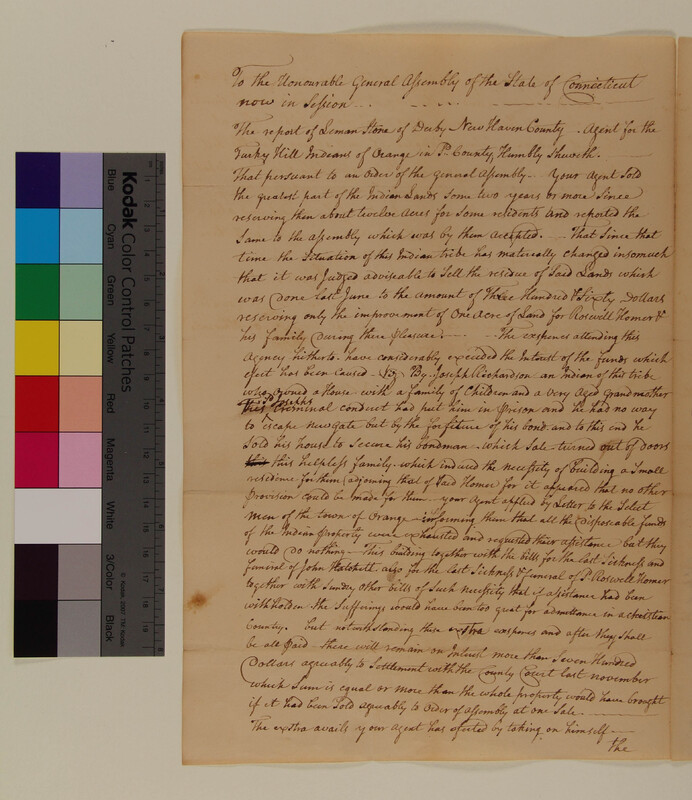 To the Honourable General Assembly of the State of Connecticut
now in Session
The report of Leman Stone of Derby New Haven County. Agent for the
Turky Hill Indians of Orange in Sd. County, Humbly Sheweth.
That persuant to an order of the General Assembly. Your Agent Sold
the greatest part of the Indian Lands some two years or more Since
reserving them about twelve Acres for Some residents and reported the
Same to the Assembly which was by them Accepted. That Since that
time the Situation of this Indian tribe has materially changed insomuch
that it was Judged adviseable to Sell the residue of Said Lands which
was done last June to the amount of Three Hundred & Sixty Dollars
reserving only the improvement of One Acre of Land for Roswill Homer &
his family During there pleasure. The expenses attending this
Agency hitherto have considerably exceeded the Interest of the funds which
efect has been caused Viz By Joseph Richardson an Indian of this tribe
who owned a House with a family of Children and a very Aged Grandmother
Sd Josephs Creminal conduct had put him in Prison and he had no way
to escape Newgate but by the forfiture of his bond and to this end he
Sold his house to Secure his bondman which Sale turned out of doors
this helpless family which induced the necessity of building a Small
residence for them adjoining that of Said Homer for it appeared that no other
Provision could be made for them your Agent applied by Letter to the Select
men of the town of Orange informing them that all the disposable funds
of the Indian Property were exhausted and requested their assistance but they
would do nothing This building together with the bills for the last Sickness and
funeral of John Hatchett also for the last Sickness & funeral of Sd Roswell Homer
together with Sundry other bills of Such necessity that if assistance had been
withholden the Sufferings would have been too great for admittance in a christian
County. but notwithstanding these extra expenses and after they Shall
be all Paid there will remain on Intrest more than Seven Hundred
Dollars agreeably to Settlement with the County Court last november
which Sum is equal or more than the whole property would have brought
if it had been Sold agreeably to order of assembly at one Sale
The extra avails your Agent has efected by taking on himself
the
Kodak Color Control Patches
Blue Cyan Green Yellow Red Magenta White 3/Color Black
© Kodak, 2007 TM: Kodak